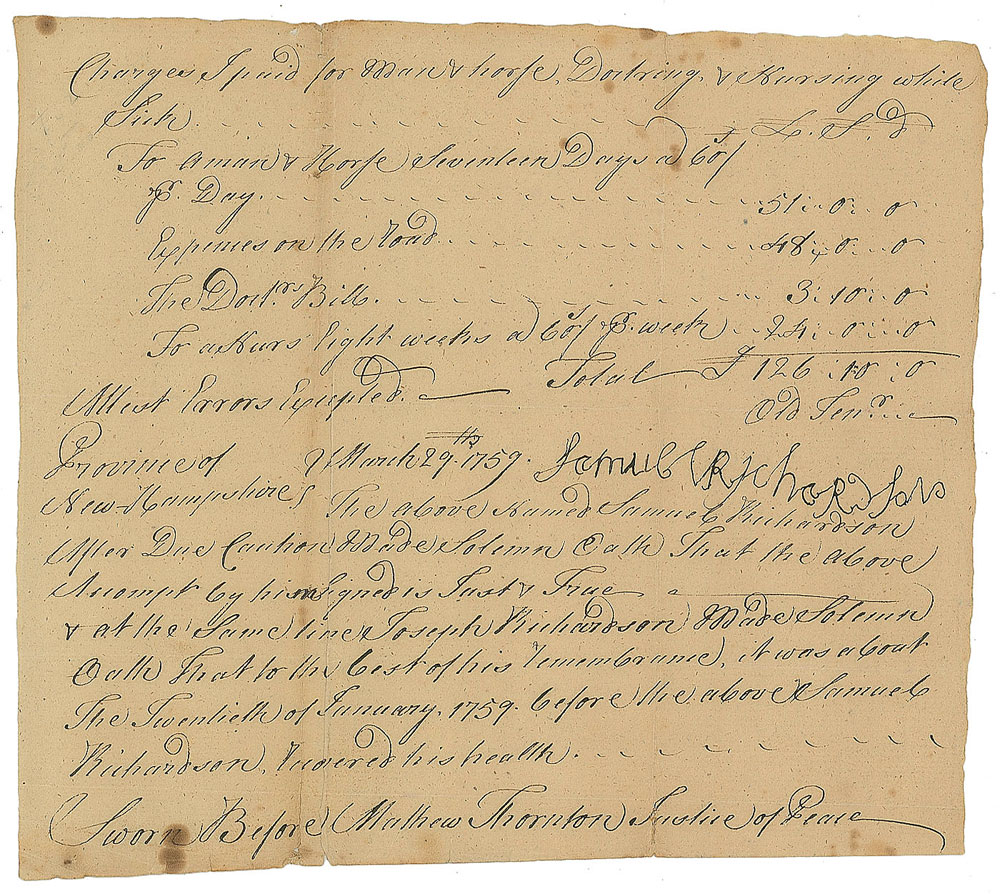 Charges I paid for Man & horse, Doctring, & Nursing while
Sick L. S. d
To a man & Horse Seventeen Days a 60s/
pr. Day 51:0:0
Expences on the road 48:0:0
The Doctrs Bill 3:10:0
To a Nurs Eight weeks a 60s/ pr. week 24:0:0
Total £ 126:10:0
Attest Errors Excepted. Old Tenr.
Province of March 29th. 1759. Samuel Richardson
New-Hampshire The above Named Samuel Richardson
After Due Caution Made Solemn Oath That the above
Accompt by him Signed is Just & True
& at the Same time Joseph Richardson Made Solemn
Oath That to the best of his remembrance, it was about
The Twentieth of January. 1759. before the above Samuel
Richardson, recovered his health
Sworn Before Mathew Thornton Justice of Peace